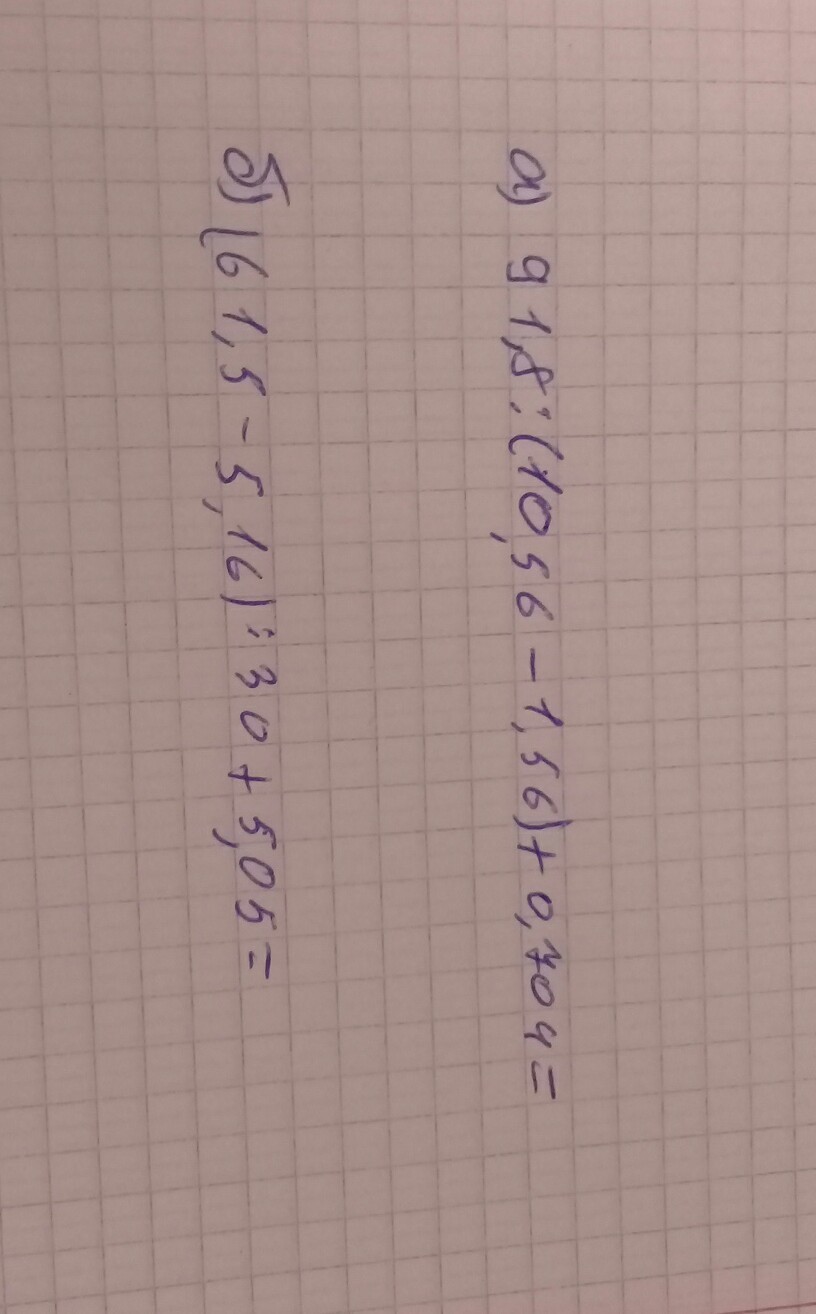 а) 91,8:(10,56-1,56)+0,704=
б) (61,5-5,16):30+5,05=